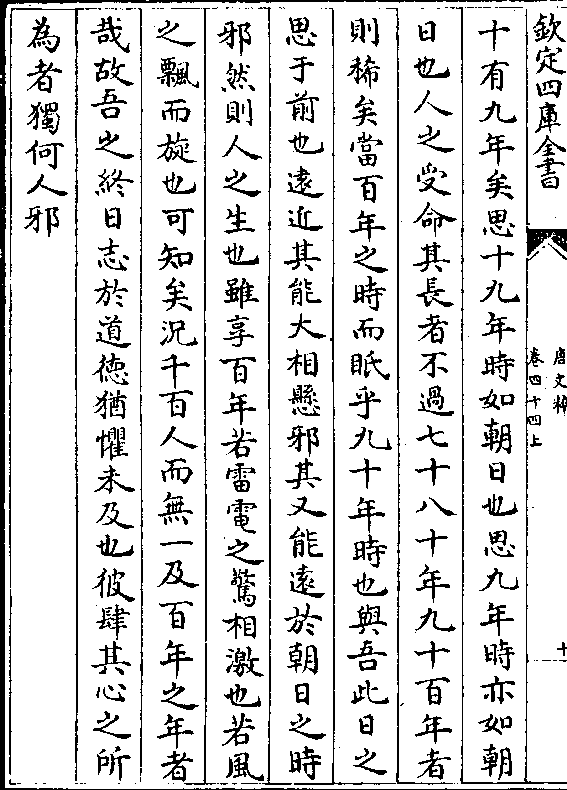 欽定四庫全書
唐文粹
卷四十四上
十
十有九年矣思十九年時如朝日也思九年時亦如朝
日也人之受命其長者不過七十八十年九十百年者
則稀矣當百年之時而眂乎九十年時也與吾此日之
思于前也遠近其能大相懸邪其又能遠於朝日之時
邪然則人之生也雖享百年若雷電之驚相激也若風
之飄而旋也可知矣況千百人而無一及百年之年者
哉故吾之終日志於道德猶懼未及也彼肆其心之所
為者獨何人邪